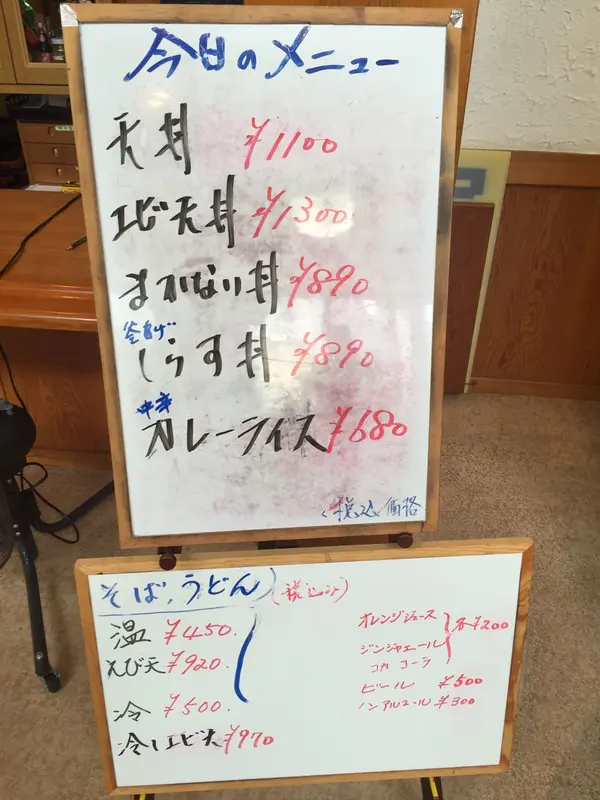 今日のメニュー
天丼 ¥1100
エビ天丼 ¥1300
まかない丼 ¥890
釜あげ
しらす丼 ¥890
中辛
カレーライス ¥680
税込価格
そば、うどん (税込み)
温 ¥450.
えび天 ¥920.
冷 ¥500.
冷しエビ天 ¥970
オレンジジュース
ジンジャエール 各¥200
コカ コーラ
ビール ¥500
ノンアルコール ¥300